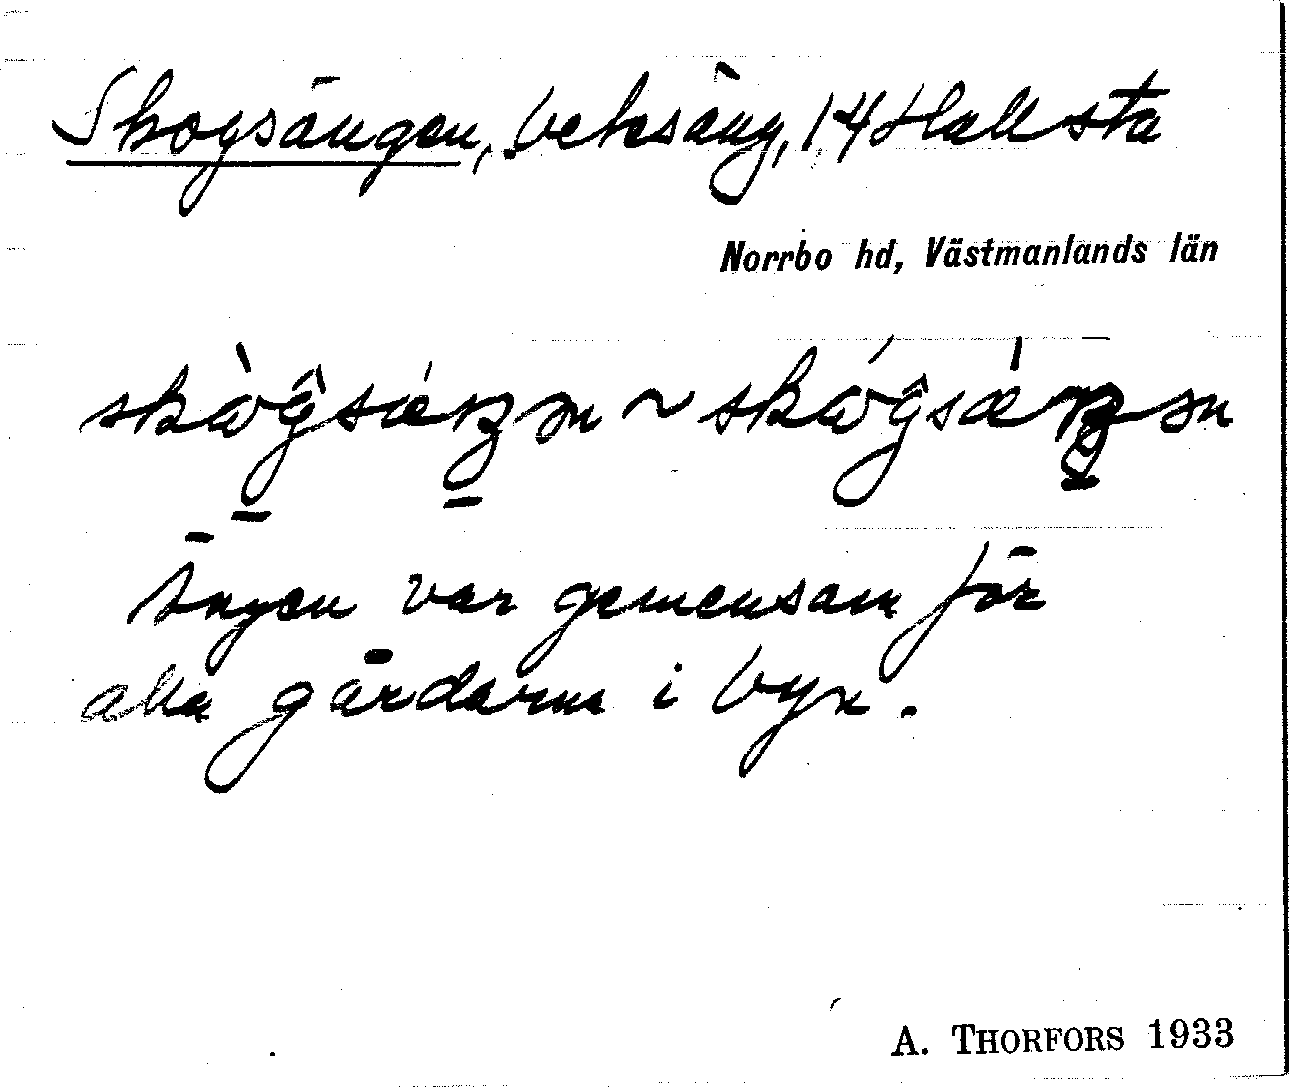 Skogsängen, betesäng, 14 Hallsta
Norrbo hd, Västmanlands län
~
Ängen var gemensam för
alla gårdarna i byn.
A. THORFORS 1933